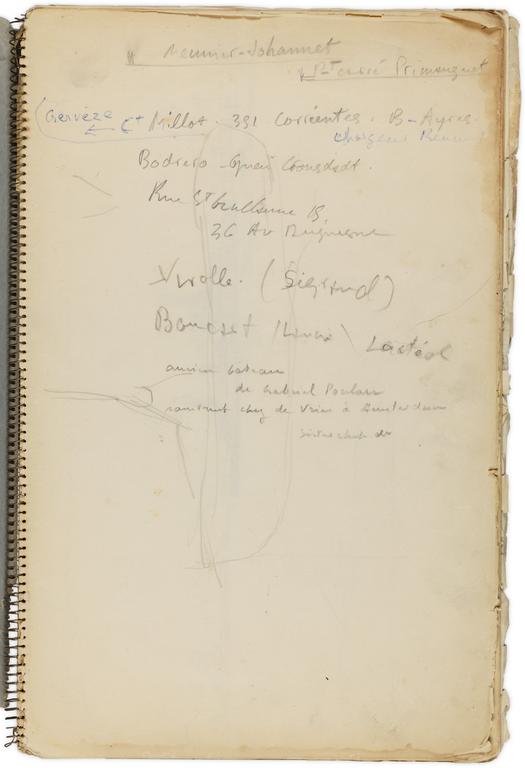 Meunier-Johannet
Primauguet
Gervèze Ct Millot. 391 Corrientes. B-Ayres.
Chargeurs Réunis
Bodrero - Quai Cronstadt.
Rue St Guillaume 15
36 Av Duquesne
Virolle. (Sigrand)
Boucset Lactéol
ancien bateau
de Gabriel Poulain
construit chez de Vries à Amsterdam